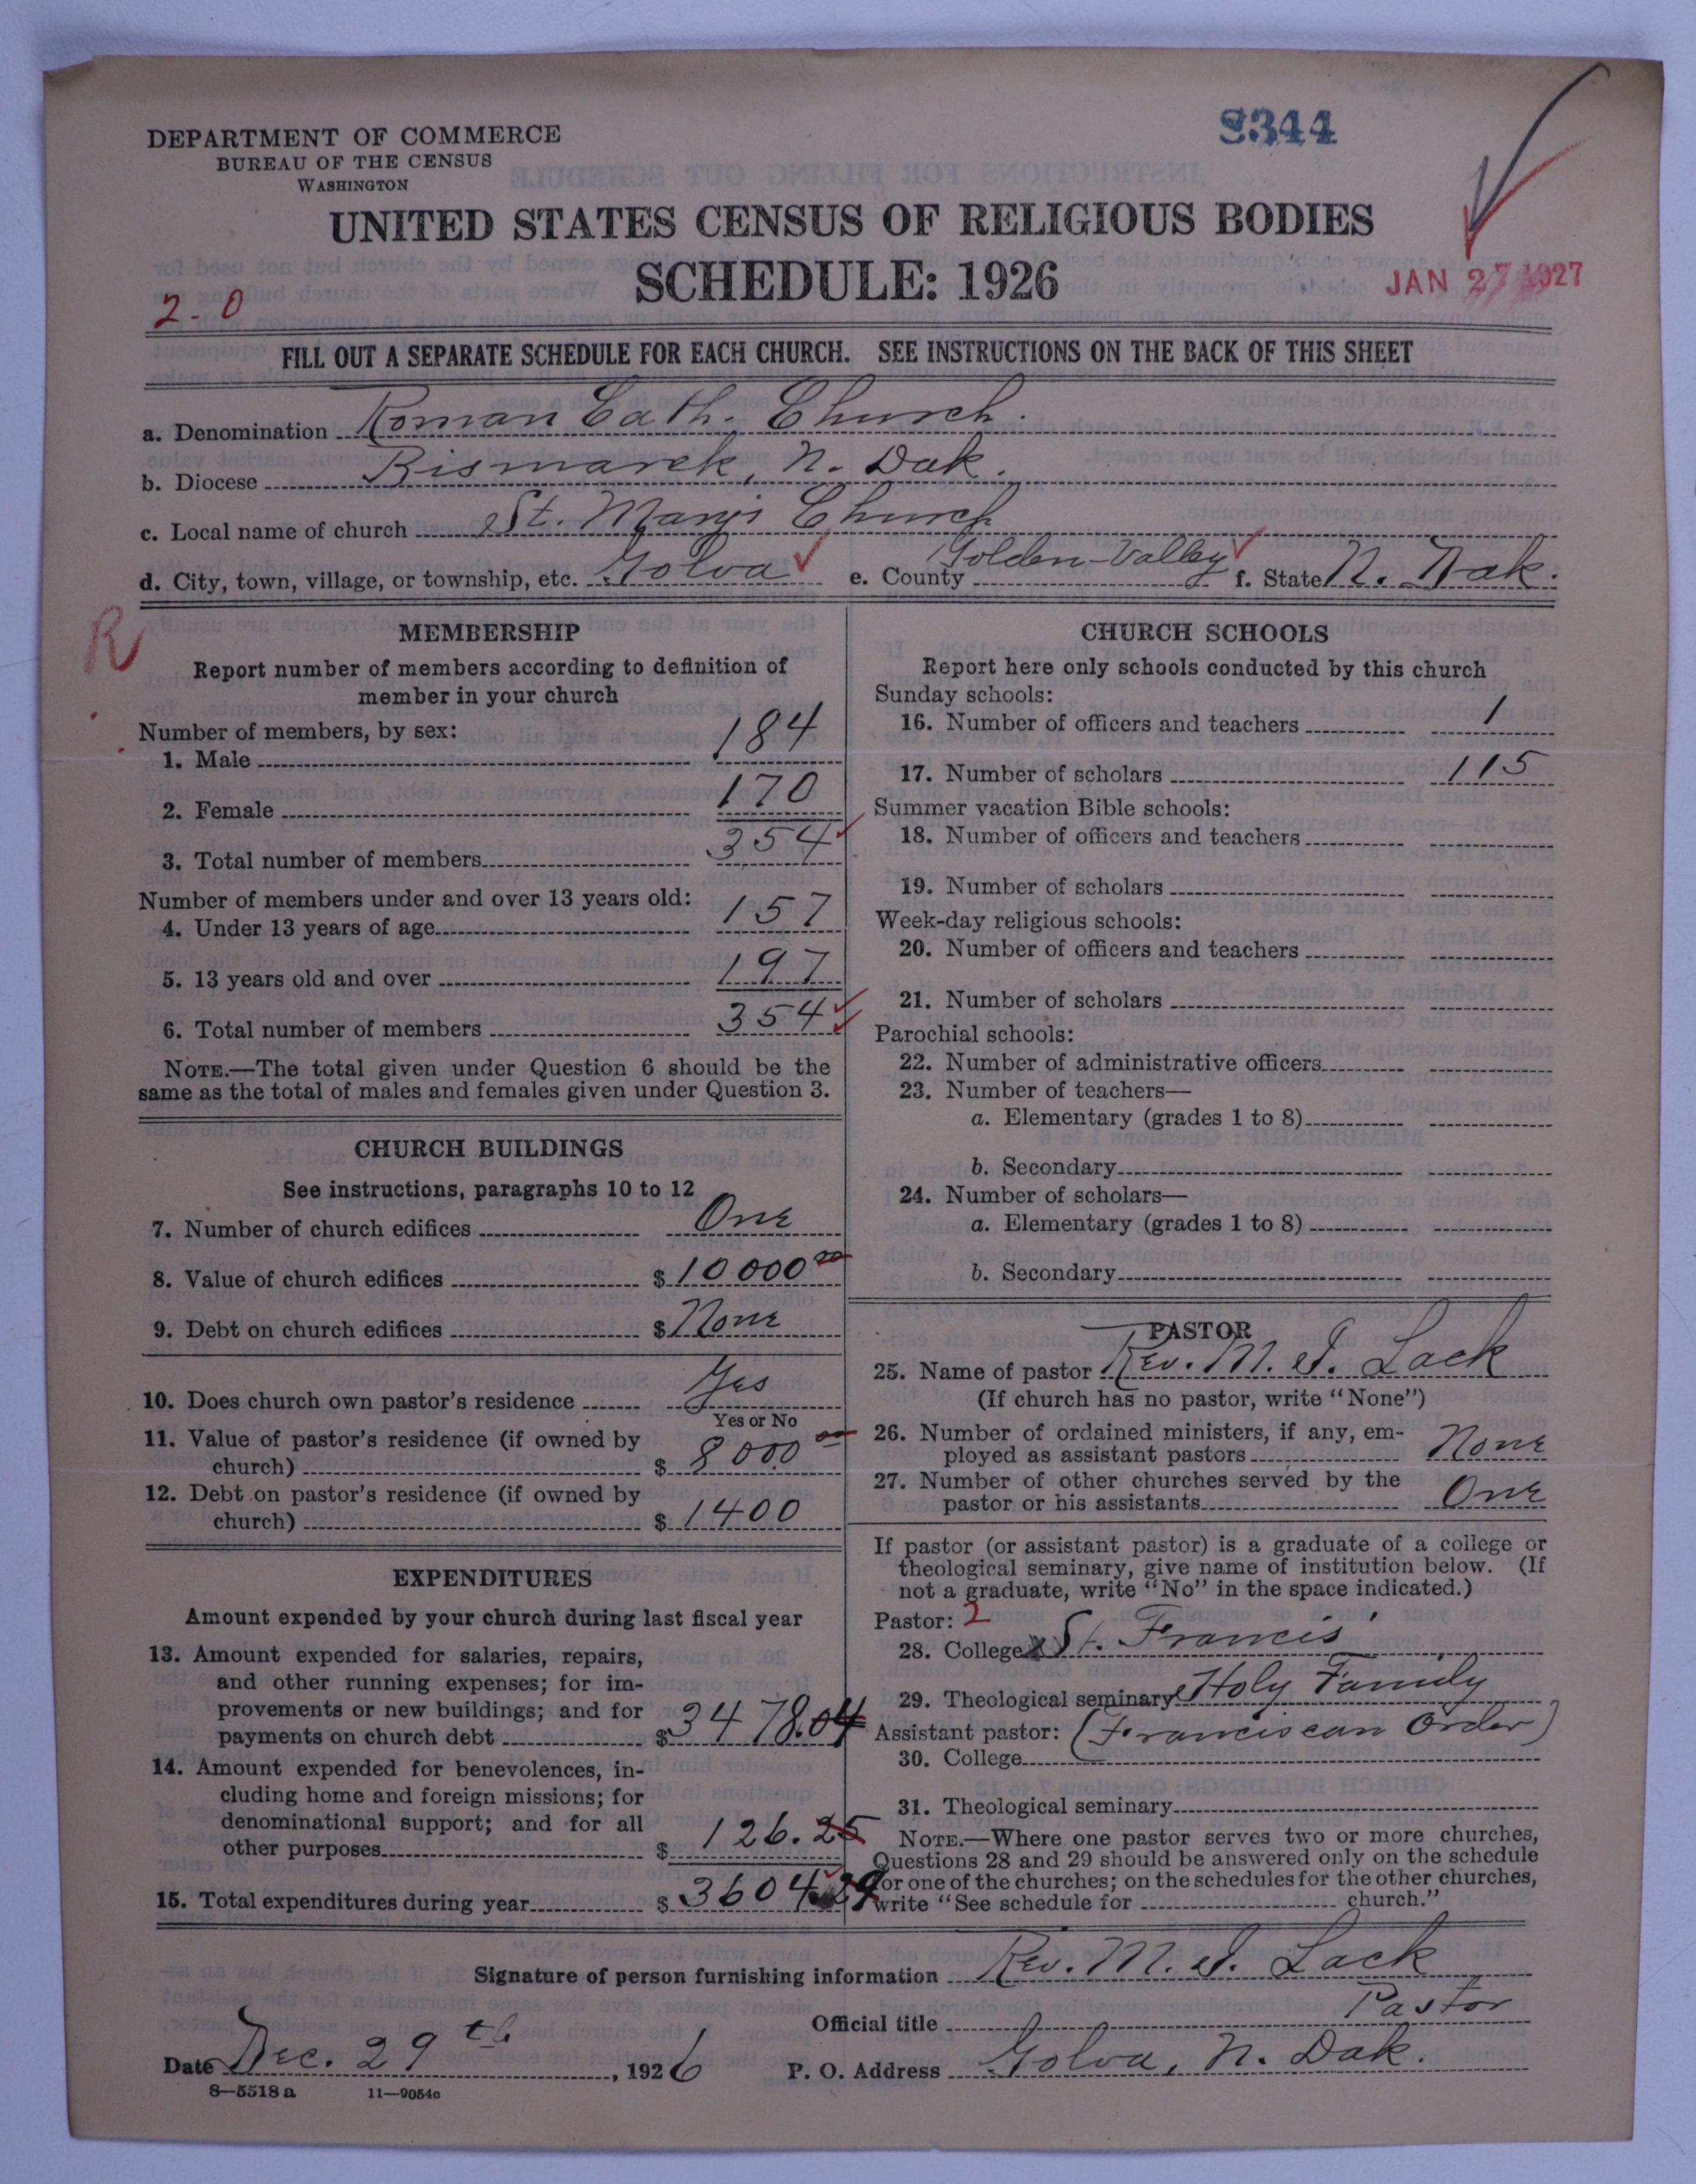 8344
DEPARTMENT OF COMMERCE
BUREAU OF THE CENSUS
WASHINGTON
UNITED STATES CENSUS OF RELIGIOUS BODIES
SCHEDULE: 1926
JAN 27 1927
2-0
FILL OUT A SEPARATE SCHEDULE FOR EACH CHURCH. SEE INSTRUCTIONS ON THE BACK OF THIS SHEET
a. Denomination Roman Cath. Church.
b. Diocese Bismarck, N. Dak.
c. Local name of church St. Marys Church
d. City, town, village, or township, etc. Golva e. County Golden-Valley f. State N. Dak.
R
MEMBERSHIP
Report number of members according to definition of
member in your church
Number of members, by sex:
1. Male 184
2. Female 170
3. Total number of members 354
Number of members under and over 13 years old:
4. Under 13 years of age 157
5. 13 years old and over 197
6. Total number of members 354
NOTE.—The total given under Question 6 should be the
same as the total of males and females given under Question 3.
CHURCH BUILDINGS
See instructions, paragraphs 10 to 12
7. Number of church edifices One
8. Value of church edifices $ 10000 00
9. Debt on church edifices $ None
10. Does church own pastor's residence Yes
Yes or No
11. Value of pastor's residence (if owned by
church) $ 8000 00
12. Debt on pastor's residence (if owned by
church) $ 1400
EXPENDITURES
Amount expended by your church during last fiscal year
13. Amount expended for salaries, repairs,
and other running expenses; for im-
provements or new buildings; and for
payments on church debt $ 3478.04
14. Amount expended for benevolences, in-
cluding home and foreign missions; for
denominational support; and for all
other purposes $ 126.25
15. Total expenditures during year $ 3604.29
CHURCH SCHOOLS
Report here only schools conducted by this church
Sunday schools:
16. Number of officers and teachers 1
17. Number of scholars 115
Summer vacation Bible schools:
18. Number of officers and teachers
19. Number of scholars
Week-day religious schools:
20. Number of officers and teachers
21. Number of scholars
Parochial schools:
22. Number of administrative officers
23. Number of teachers—
a. Elementary (grades 1 to 8)
b. Secondary
24. Number of scholars—
a. Elementary (grades 1 to 8)
b. Secondary
PASTOR
25. Name of pastor Rev. M. J. Lack
(If church has no pastor, write "None")
26. Number of ordained ministers, if any, em-
ployed as assistant pastors None
27. Number of other churches served by the
pastor or his assistants One
If pastor (or assistant pastor) is a graduate of a college or
theological seminary, give name of institution below. (If
not a graduate, write "No" in the space indicated.)
Pastor: 2
28. College St. Francis'
29. Theological seminary Holy Family
Assistant pastor: (Franciscan Order)
30. College
31. Theological seminary
NOTE.—Where one pastor serves two or more churches,
Questions 28 and 29 should be answered only on the schedule
for one of the churches; on the schedules for the other churches,
write "See schedule for church."
Signature of person furnishing information Rev. M. J. Lack
Official title Pastor
Date Dec. 29th, 1926 P. O. Address Golva, N. Dak.
8—5518 a 11—9054c